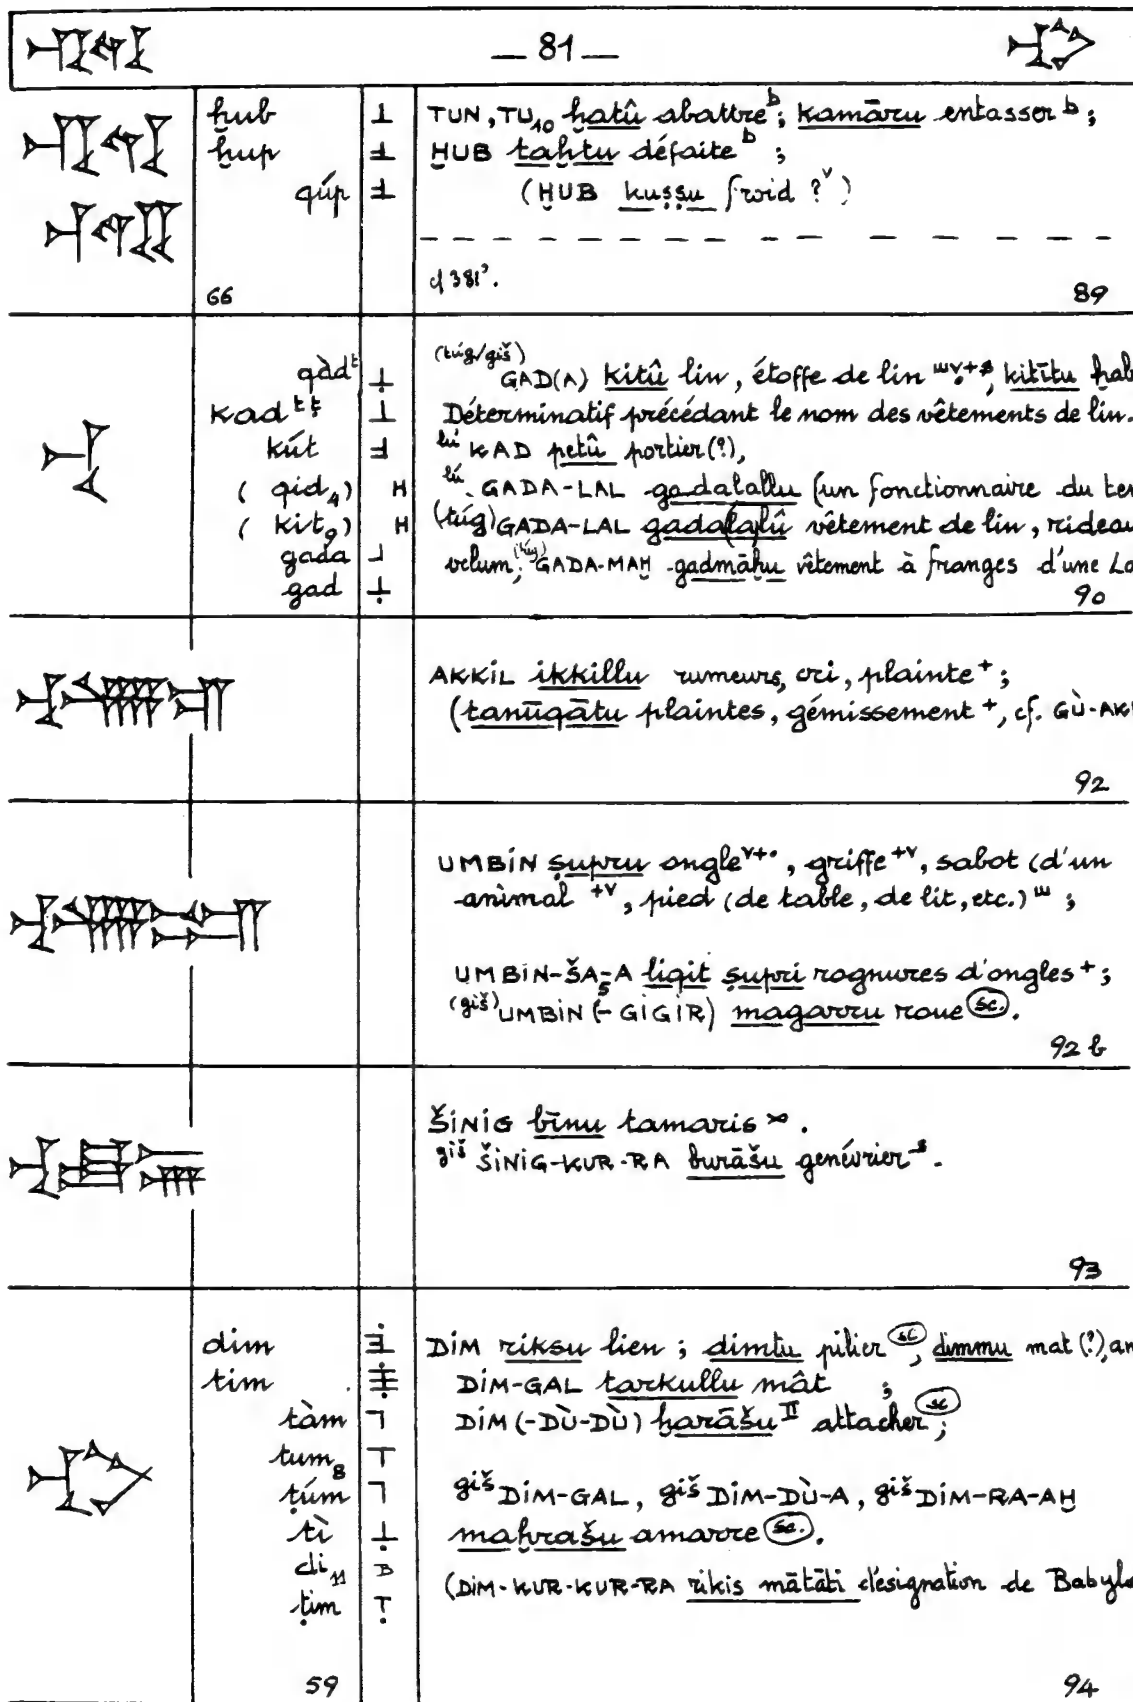 — 81 —
ḫub TUN, TU₁₀ ḫatû abattre ᵇ; kamāru entasser ᵇ;
ḫup ḪUB taḫtu défaite ᵇ;
qúp (ḪUB kuṣṣu froid ?ᵛ)
cf 381'.
66 89
qàdᵗ (túg/giš) GAD(A) kitû lin, étoffe de lin, kitītu
kad ᵗ ṭ Déterminatif précédant le nom des vêtements de lin.
kút lú KAD petû portier(?),
(qid₄) lú. GADA-LAL gadalallu (un fonctionnaire du
(kit₉) (túg) GADA-LAL gada(la)lû vêtement de lin, rideau
gada velum; (túg) GADA-MAḪ gadmāḫu vêtement à franges d'une
gad 90
AKKIL ikkillu rumeurs, cri, plainte ⁺;
(tanūqātu plaintes, gémissement ⁺, cf. GÙ-
92
UMBIN ṣupru ongle ᵛ⁺·, griffe ⁺ᵛ, sabot (d'un
animal ⁺ᵛ, pied (de table, de lit, etc.) ᵚ;
UMBIN-ŠA₅-A liqit ṣupri rognures d'ongles ⁺;
(giš) UMBIN (-GIGIR) magarru roue (sc.).
92 b
ŠINIG bīnu tamaris.
giš ŠINIG-KUR-RA burāšu genévrier.
93
dim DIM riksu lien; dimtu pilier (sc), dimmu mat (?),
tim DIM-GAL tarkullu mât ;
tàm DIM (-DÙ-DÙ) ḫarāšu II attacher (sc);
tum₈
ṭúm giš DIM-GAL, giš DIM-DÙ-A, giš DIM-RA-AḪ
tì maḫrašu amarre (sc.).
di₁₁ (DIM-KUR-KUR-RA rikis mātāti désignation de
ṭim
59 94